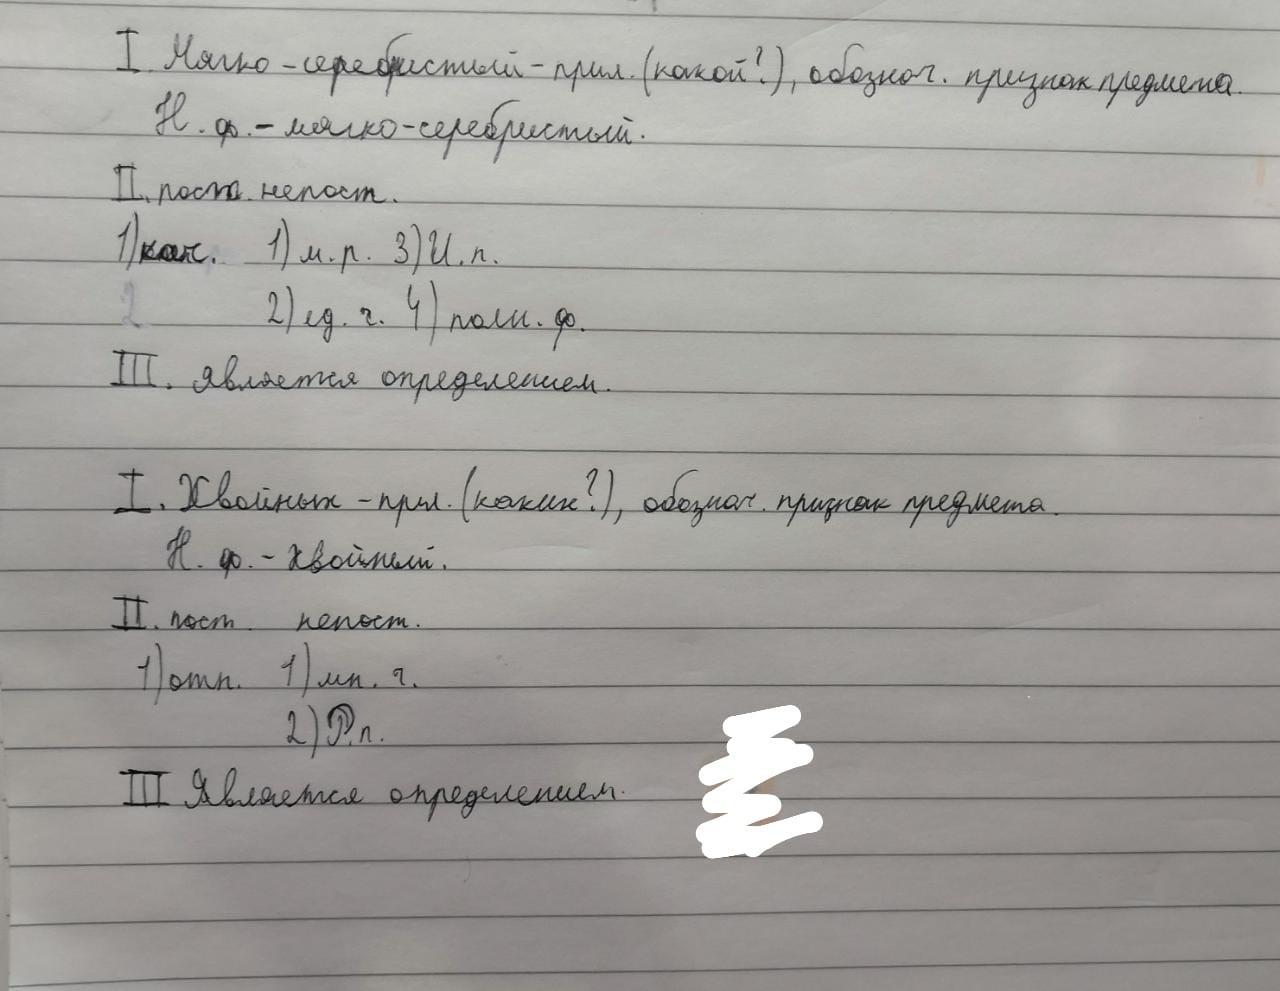 I. Мягко-серебристый - прил. (какой?), обознач. признак предмета.
Н. ф. - мягко-серебристый.
II. пост. непост.
1) кач. 1) м. р. 3) И. п.
2 2) ед. ч. 4) полн. ф.
III. является определением.
I. Хвойных - прил. (каких?), обознач. признак предмета.
Н. ф. - хвойный.
II. пост. непост.
1) отн. 1) мн. ч.
2) Р. п.
III Является определением.